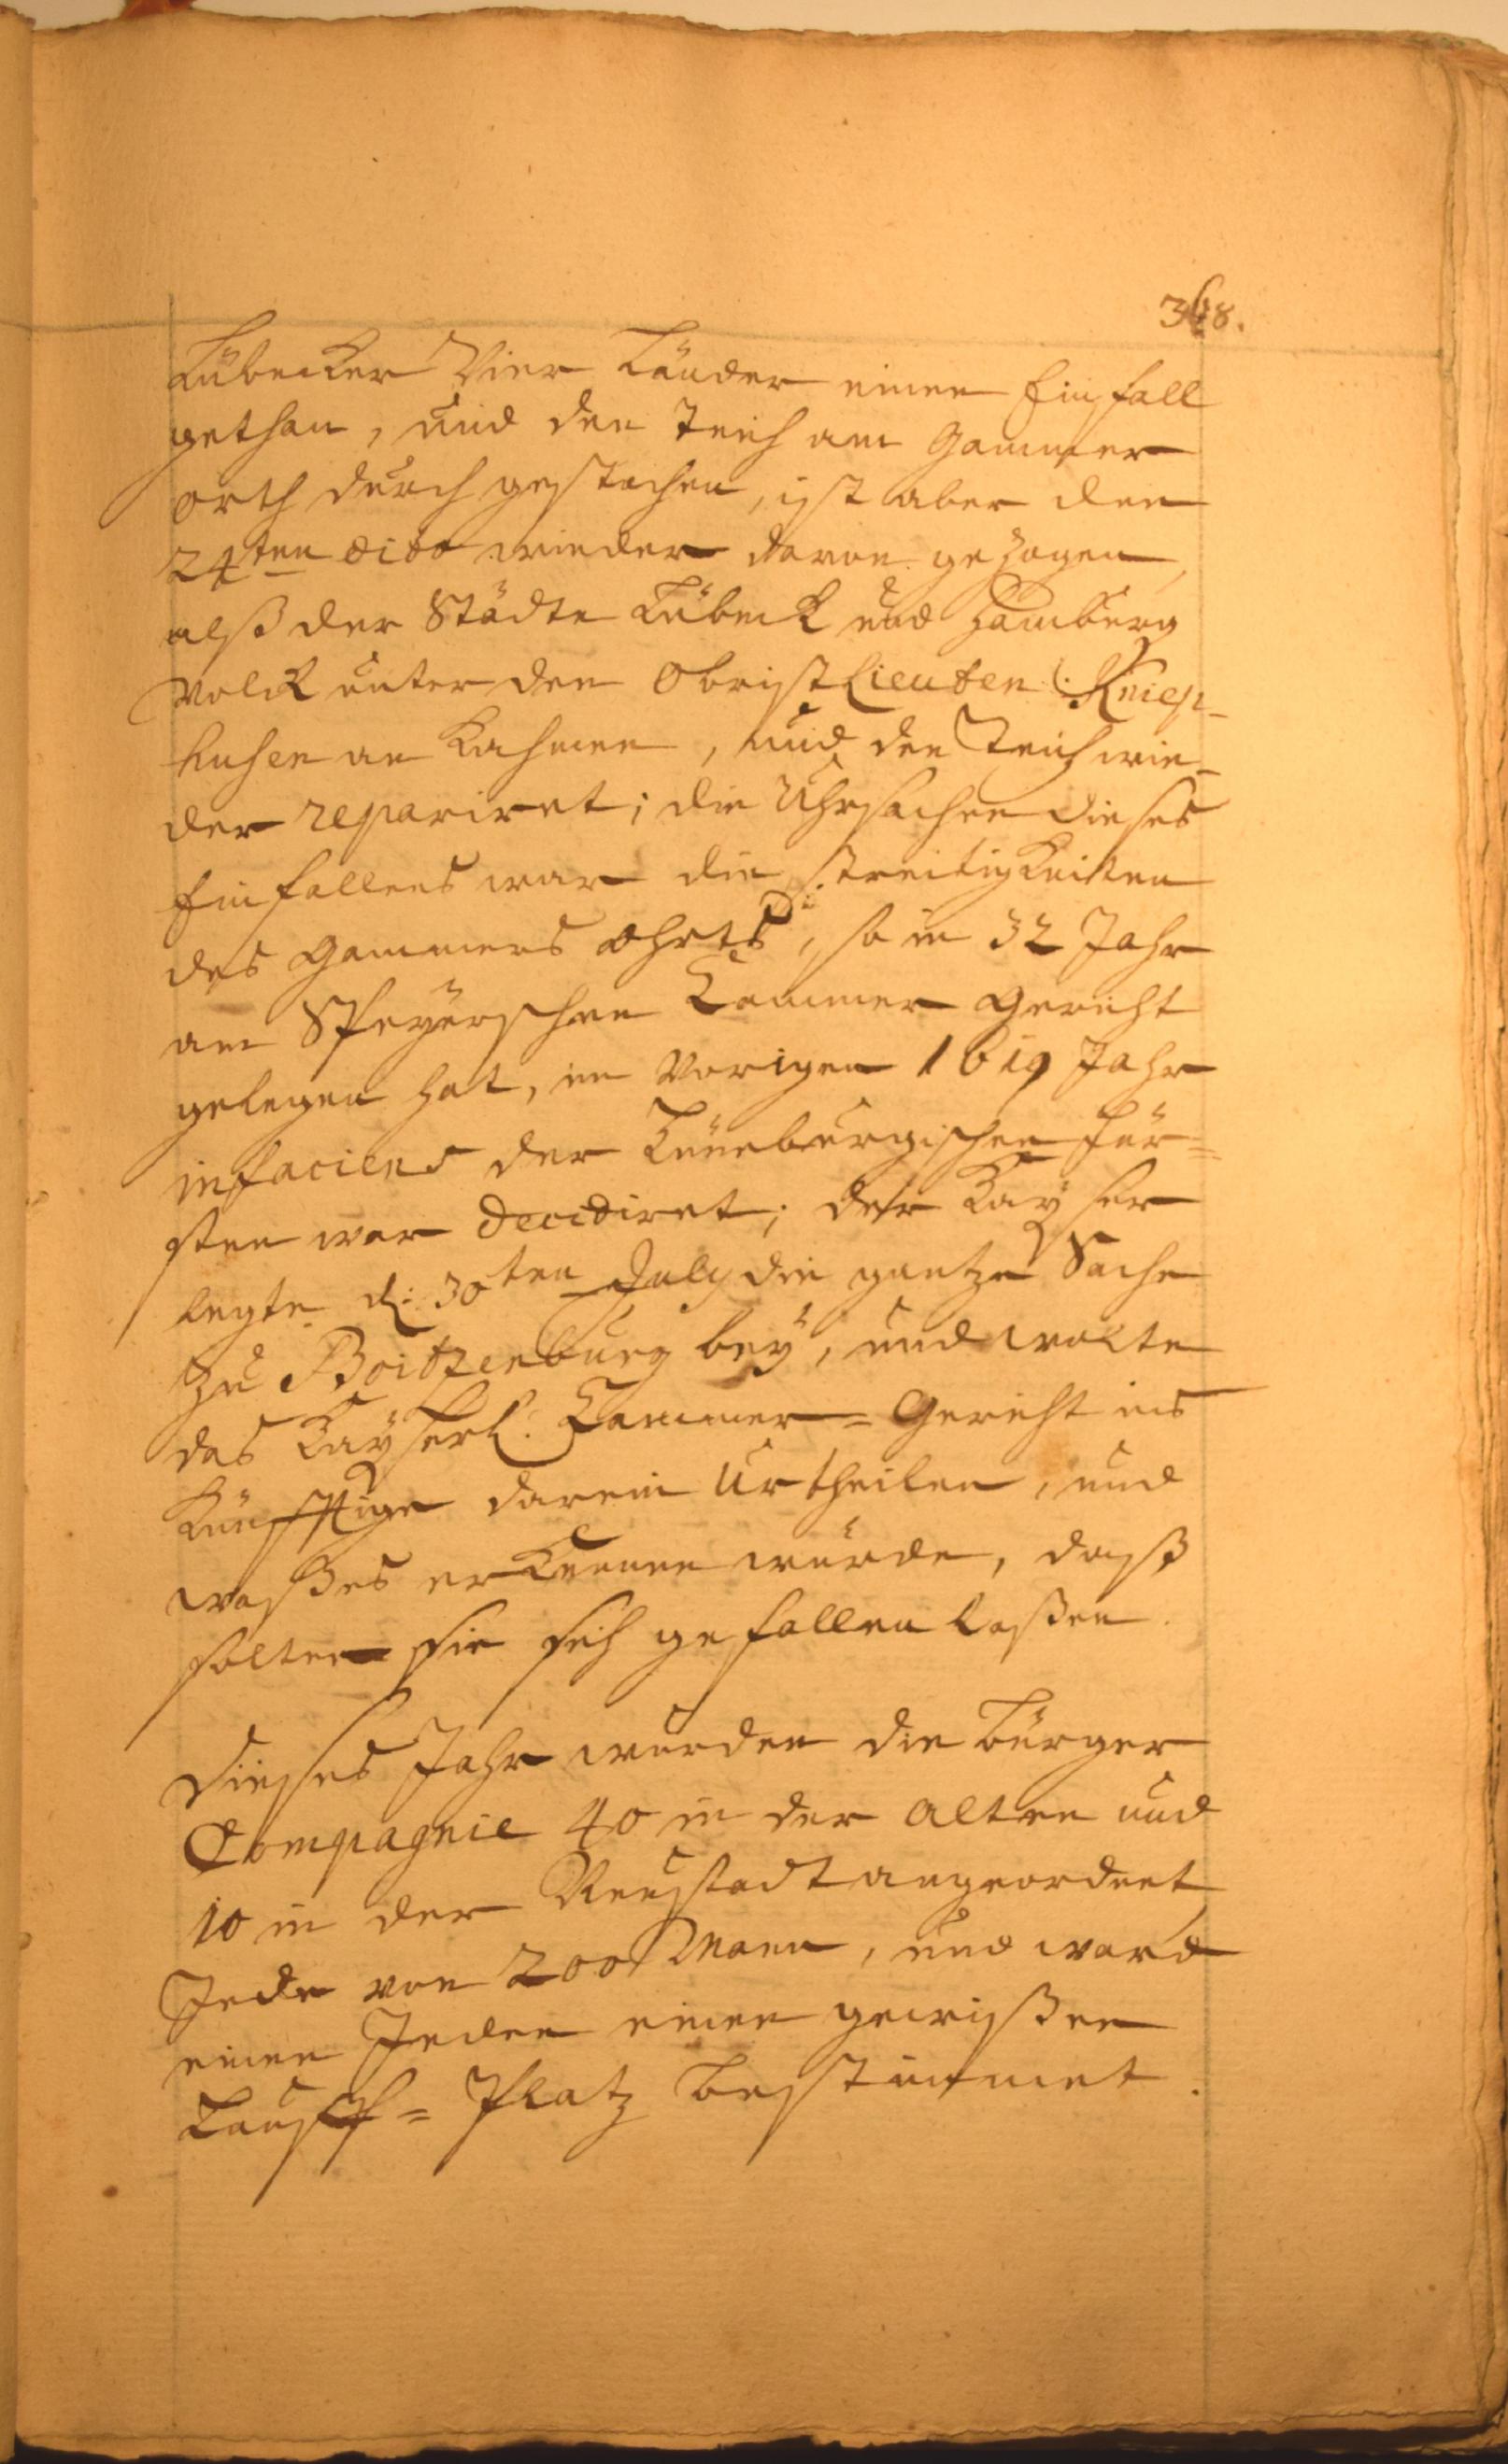 368.
Lübecker Vier Länder einen Einfall
gethan, und den Teich am Gammer
orth durch gestochen, ist aber den
24ten dito wieder davon gezogen,
alß der Städte Lübeck und Hamburg
Volck unter den Obrist Lieuten: Kniep-
husen an kahmen, und den Teich wie-
der repariret; die Uhrsachen dieses
Einfallens war die streitigkeiten
des Gammers Ohrts, so in 32 Jahr
am Speyerschen Cammer Gericht
gelegen hat, im Vorigen 1619 Jahr
in faciens der Lüneburgischen Für=
sten war decidiret; der Kayser
legte d: 30ten July die gantze Sache
zu Boitzenburg bey, und wolte
das Kayserl: Cammer=Gericht ins
künfftige darein Urtheilen, und
waß es erkennen würde, daß
solten sie sich gefallen laßen.
Dieses Jahr wurden die Bürger
Compagnie 40 in der Alten und
10 in der Neustadt angeordnet
Jede von 200 Mann, und ward
einen Jeden einen gewißen
Lauff=Platz bestimmet.